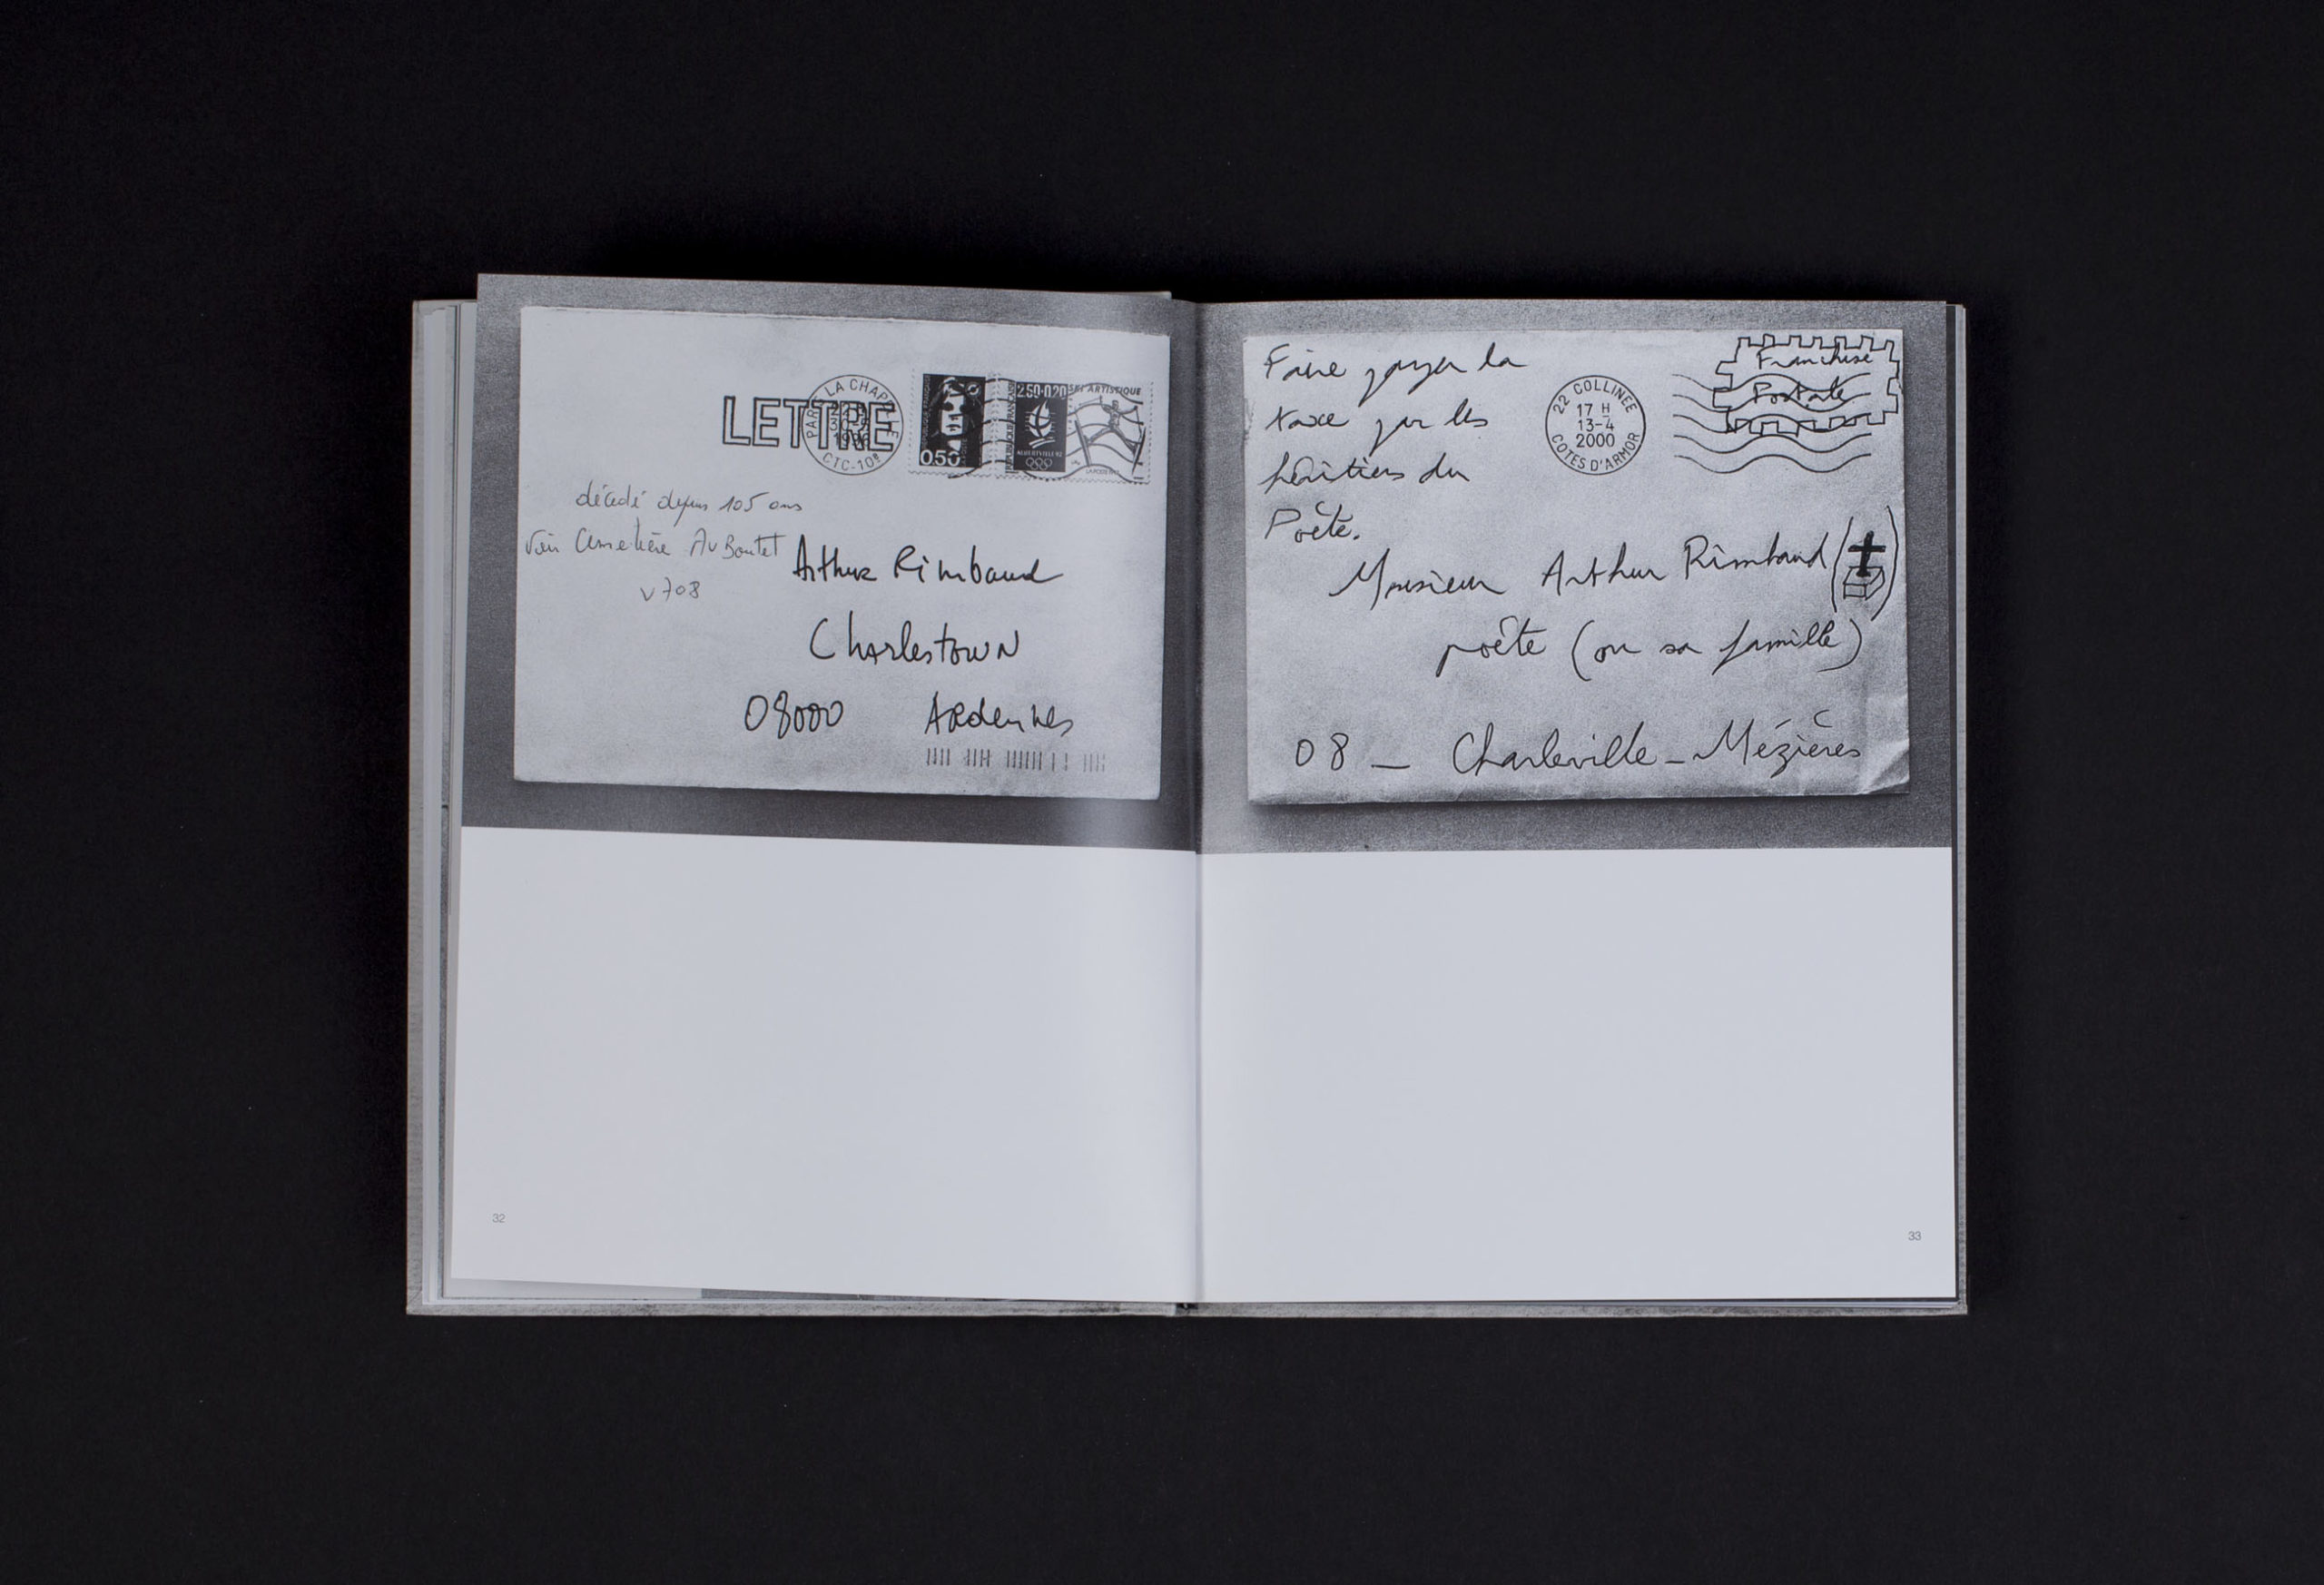 LETTRE
PARIS LA CHAPELLE
1996
CTC-10e
0.50
2.50+0.20
SKI ARTISTIQUE
ALBERTVILLE 92
LA POSTE
décédé depuis 105 ans
Voir Cimetière Av Boutet
v 708
Arthur Rimbaud
Charlestown
08000 Ardennes
32
Faire payer la
taxe par les
héritiers du
Poète.
22 COLLINEE
17 H
13-4
2000
COTES D'ARMOR
Franchise
Postale
Monsieur Arthur Rimbaud
poète (ou sa famille)
08 - Charleville-Mézières
33